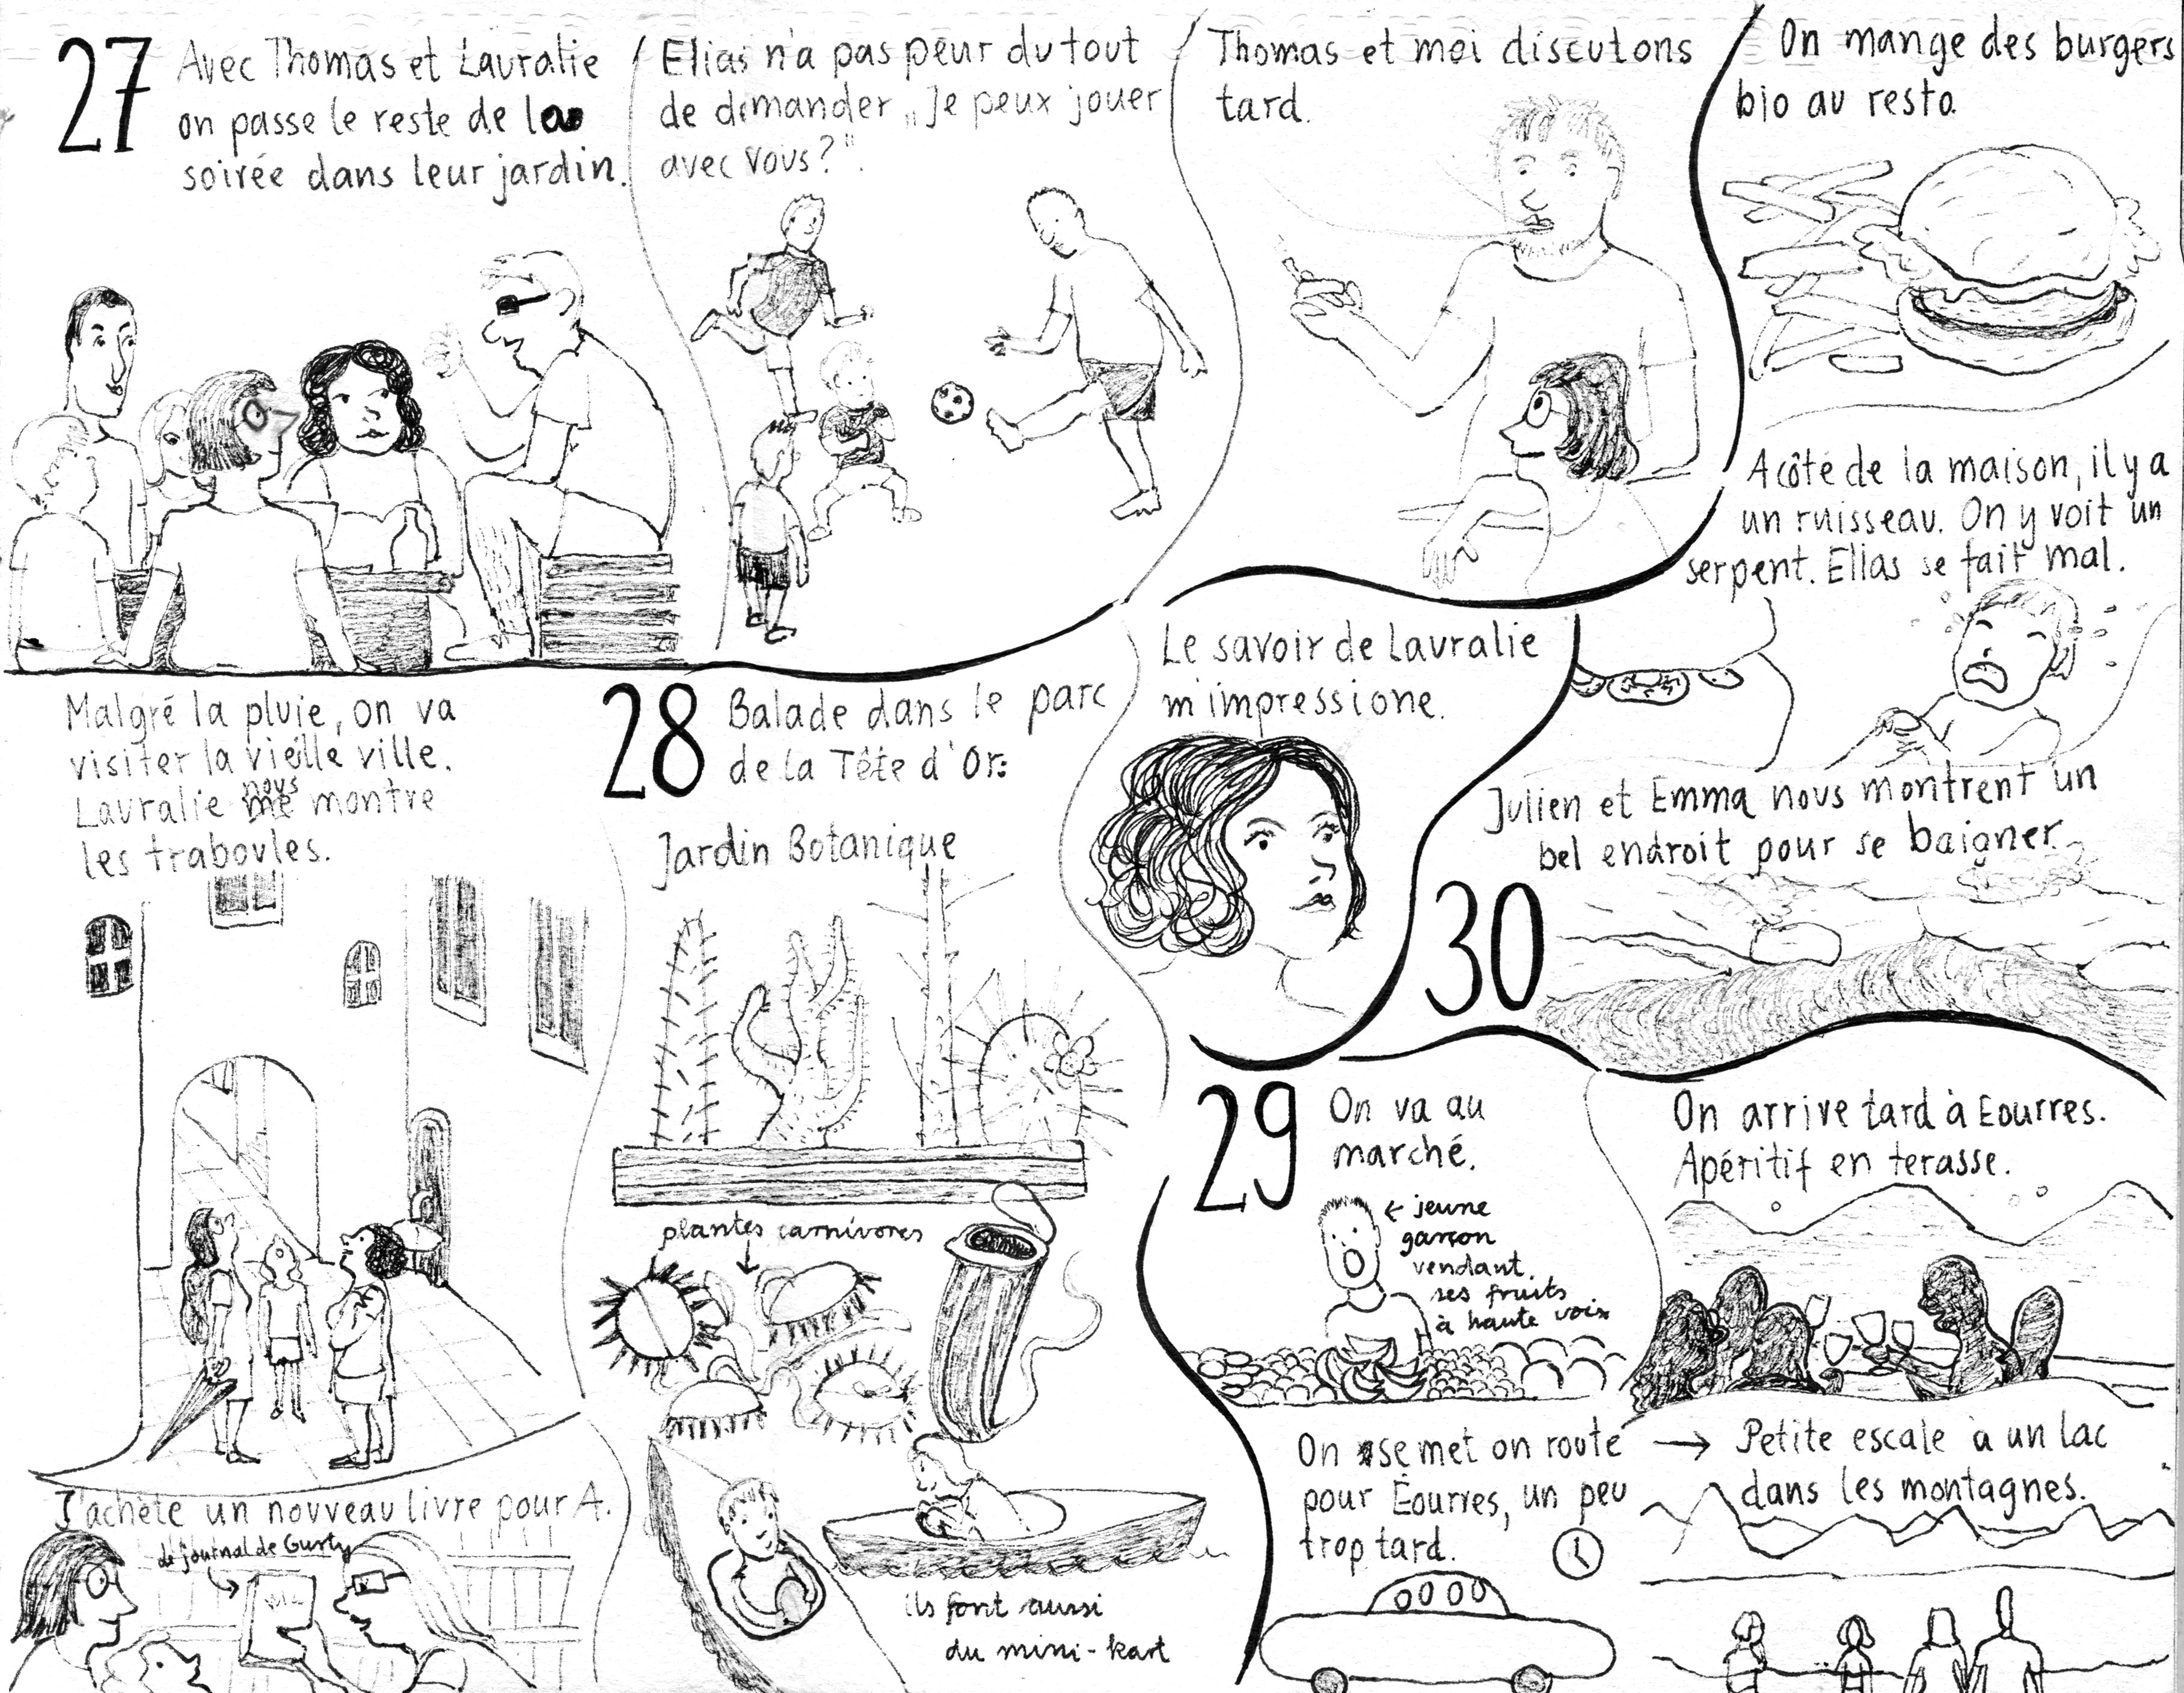 27
Avec Thomas et Lauralie
on passe le reste de la
soirée dans leur jardin.
Elias n'a pas peur du tout
de demander „Je peux jouer
avec vous?".
Thomas et moi discutons
tard.
Malgré la pluie, on va
visiter la vieille ville.
Lauralie nous montre
les traboules.
J'achète un nouveau livre pour A.
le journal de Gurty
28
Balade dans le parc
de la Tête d'Or:
Jardin Botanique
plantes carnivores
ils font aussi
du mini-kart
Le savoir de Lauralie
m'impressione.
29
On va au
marché.
← jeune
garçon
vendant
ses fruits
à haute voix
On se met on route
pour Éourres, un peu
trop tard.
→ Petite escale à un lac
dans les montagnes.
On arrive tard à Eourres.
Apéritif en terasse.
30
Julien et Emma nous montrent un
bel endroit pour se baigner.
A côté de la maison, il y a
un ruisseau. On y voit un
serpent. Elias se fait mal.
On mange des burgers
bio au resto.